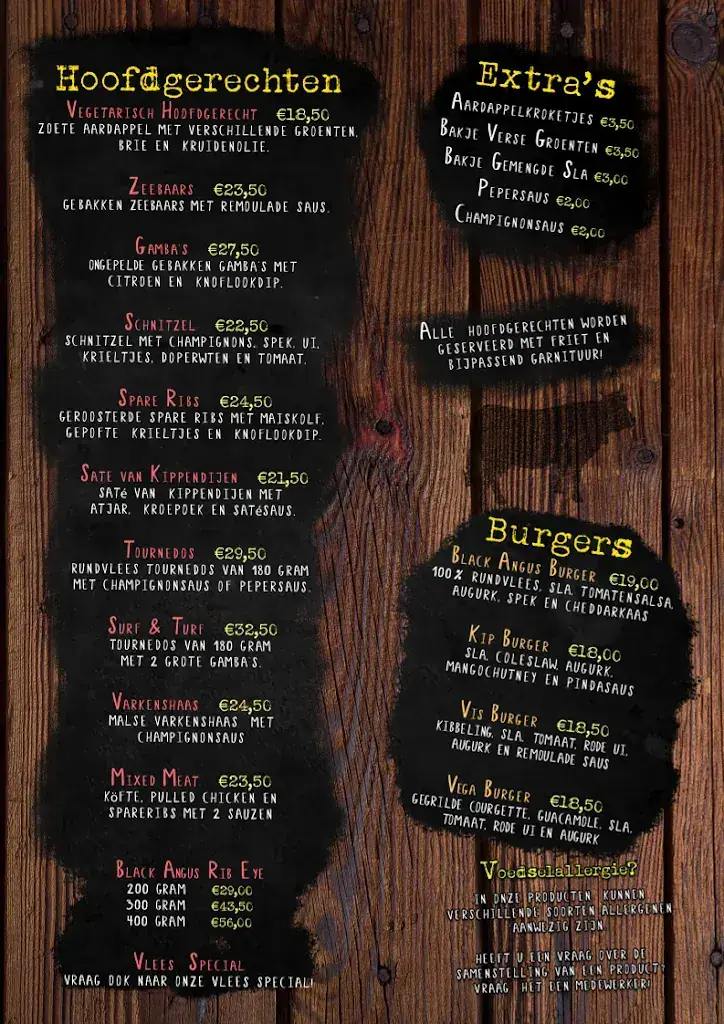 Hoofdgerechten
Vegetarisch Hoofdgerecht €18,50
Zoete aardappel met verschillende groenten,
brie en kruidenolie.
Zeebaars €23,50
Gebakken zeebaars met remoulade saus.
Gamba's €27,50
Ongepelde gebakken gamba's met
citroen en knoflookdip.
Schnitzel €22,50
Schnitzel met champignons, spek, ui,
krieltjes, doperwten en tomaat.
Spare Ribs €24,50
Geroosterde spare ribs met maiskolf,
gepofte krieltjes en knoflookdip.
Sate van Kippendijen €21,50
Saté van kippendijen met
atjar, kroepoek en satésaus.
Tournedos €29,50
Rundvlees tournedos van 180 gram
met champignonsaus of pepersaus.
Surf & Turf €32,50
Tournedos van 180 gram
met 2 grote gamba's.
Varkenshaas €24,50
Malse varkenshaas met
champignonsaus
Mixed Meat €23,50
Köfte, pulled chicken en
spareribs met 2 sauzen
Black Angus Rib Eye
200 gram €29,00
300 gram €43,50
400 gram €56,00
Vlees Special
Vraag ook naar onze vlees special!
Extra's
Aardappelkroketjes €3,50
Bakje Verse Groenten €3,50
Bakje Gemengde Sla €3,00
Pepersaus €2,00
Champignonsaus €2,00
Alle hoofdgerechten worden
geserveerd met friet en
bijpassend garnituur!
Burgers
Black Angus Burger €19,00
100% rundvlees, sla, tomatensalsa,
augurk, spek en cheddarkaas
Kip Burger €18,00
Sla, coleslaw, augurk,
mangochutney en pindasaus
Vis Burger €18,50
Kibbeling, sla, tomaat, rode ui,
augurk en remoulade saus
Vega Burger €18,50
Gegrilde courgette, guacamole, sla,
tomaat, rode ui en augurk
Voedselallergie?
In onze producten kunnen
verschillende soorten allergenen
aanwezig zijn
Heeft u een vraag over de
samenstelling van een product?
Vraag het een medewerker!